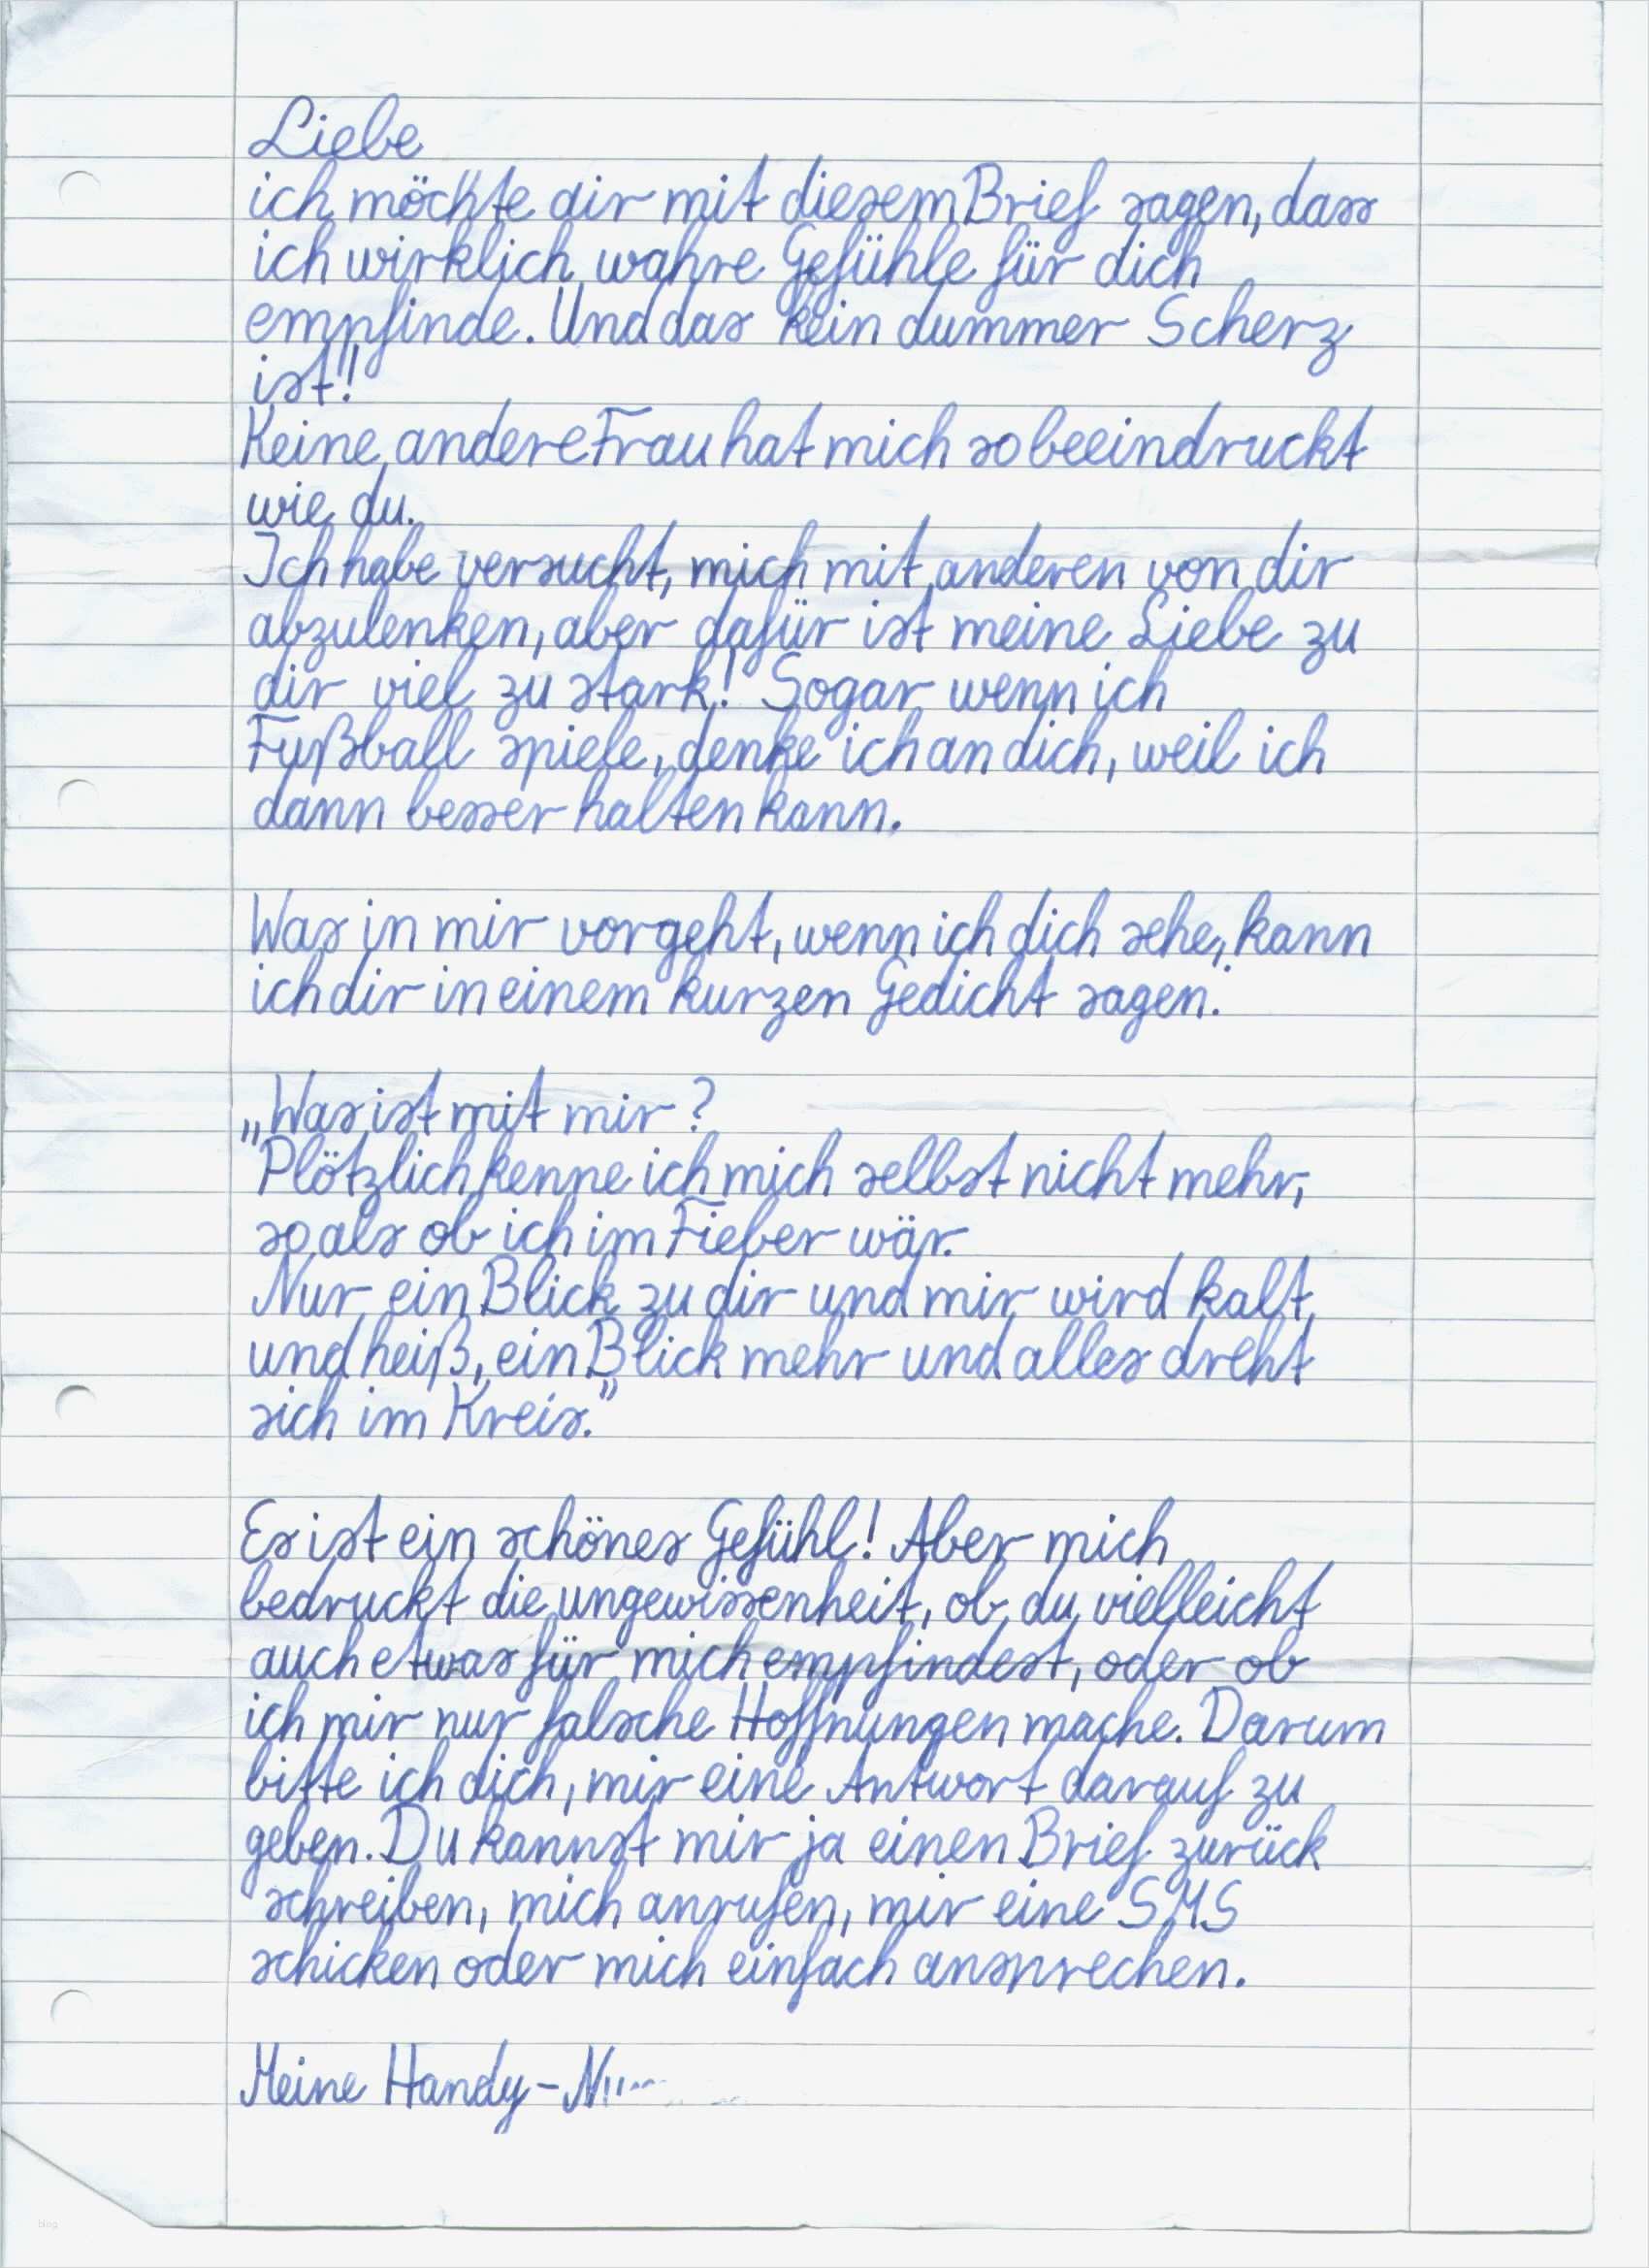 Liebe
ich möchte dir mit diesem Brief sagen, dass
ich wirklich wahre Gefühle für dich
empfinde. Und das kein dummer Scherz
ist!
Keine andere Frau hat mich so beeindruckt
wie du.
Ich habe versucht, mich mit anderen von dir
abzulenken, aber dafür ist meine Liebe zu
dir viel zu stark! Sogar wenn ich
Fußball spiele, denke ich an dich, weil ich
dann besser halten kann.
Was in mir vorgeht, wenn ich dich sehe, kann
ich dir in einem kurzen Gedicht sagen:
„Was ist mit mir?
Plötzlich kenne ich mich selbst nicht mehr,
so als ob ich im Fieber wär.
Nur ein Blick zu dir und mir wird kalt
und heiß, ein Blick mehr und alles dreht
sich im Kreis."
Es ist ein schönes Gefühl! Aber mich
bedruckt die ungewissenheit, ob du vielleicht
auch etwas für mich empfindest, oder ob
ich mir nur falsche Hoffnungen mache. Darum
bitte ich dich, mir eine Antwort darauf zu
geben. Du kannst mir ja einen Brief zurück
schreiben, mich anrufen, mir eine SMS
schicken oder mich einfach ansprechen.
Meine Handy-
blog